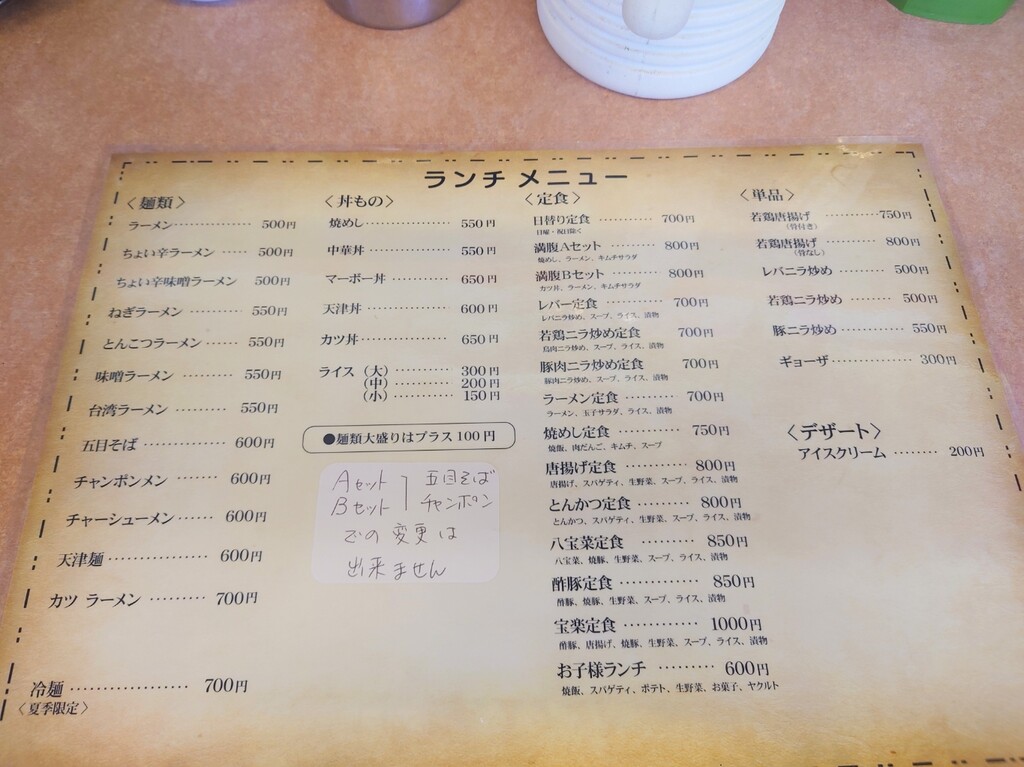 ランチ メニュー
〈麺類〉
ラーメン………… 500円
ちょい辛ラーメン …… 500円
ちょい辛味噌ラーメン 500円
ねぎラーメン ………… 550円
とんこつラーメン …… 550円
味噌ラーメン ………… 550円
台湾ラーメン ……… 550円
五目そば …………… 600円
チャンポンメン ……… 600円
チャーシューメン…… 600円
天津麺 ……………… 600円
カツ ラーメン ……… 700円
冷麺 ………………… 700円
〈夏季限定〉
〈丼もの〉
焼めし……………… 550円
中華丼 …………… 550円
マーボー丼 ………… 650円
天津丼 …………… 600円
カツ丼……………… 650円
ライス（大）………… 300円
（中）………… 200円
（小）………… 150円
●麺類大盛りはプラス100円
Aセット 五目そば
Bセット チャンポン
での変更は
出来ません
〈定食〉
日替り定食 ………… 700円
日曜・祝日除く
満腹Aセット ……… 800円
焼めし、ラーメン、キムチサラダ
満腹Bセット ……… 800円
カツ丼、ラーメン、キムチサラダ
レバー定食 ………… 700円
レバニラ炒め、スープ、ライス、漬物
若鶏ニラ炒め定食 700円
鳥肉ニラ炒め、スープ、ライス、漬物
豚肉ニラ炒め定食 700円
豚肉ニラ炒め、スープ、ライス、漬物
ラーメン定食 ……… 700円
ラーメン、玉子サラダ、ライス、漬物
焼めし定食 ………… 750円
焼飯、肉だんご、キムチ、スープ
唐揚げ定食 ………… 800円
唐揚げ、スパゲティ、生野菜、スープ、ライス、漬物
とんかつ定食 ……… 800円
とんかつ、スパゲティ、生野菜、スープ、ライス、漬物
八宝菜定食 ………… 850円
八宝菜、焼豚、生野菜、スープ、ライス、漬物
酢豚定食 …………… 850円
酢豚、焼豚、生野菜、スープ、ライス、漬物
宝楽定食 ………… 1000円
酢豚、唐揚げ、焼豚、生野菜、スープ、ライス、漬物
お子様ランチ ……… 600円
焼飯、スパゲティ、ポテト、生野菜、お菓子、ヤクルト
〈単品〉
若鶏唐揚げ ………750円
（骨付き）
若鶏唐揚げ ……… 800円
（骨なし）
レバニラ炒め ……… 500円
若鶏ニラ炒め ……… 500円
豚ニラ炒め ………… 550円
ギョーザ…………… 300円
〈デザート〉
アイスクリーム ……… 200円